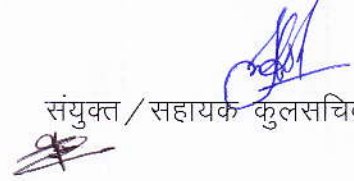 संयुक्त / सहायक कुलसचिव